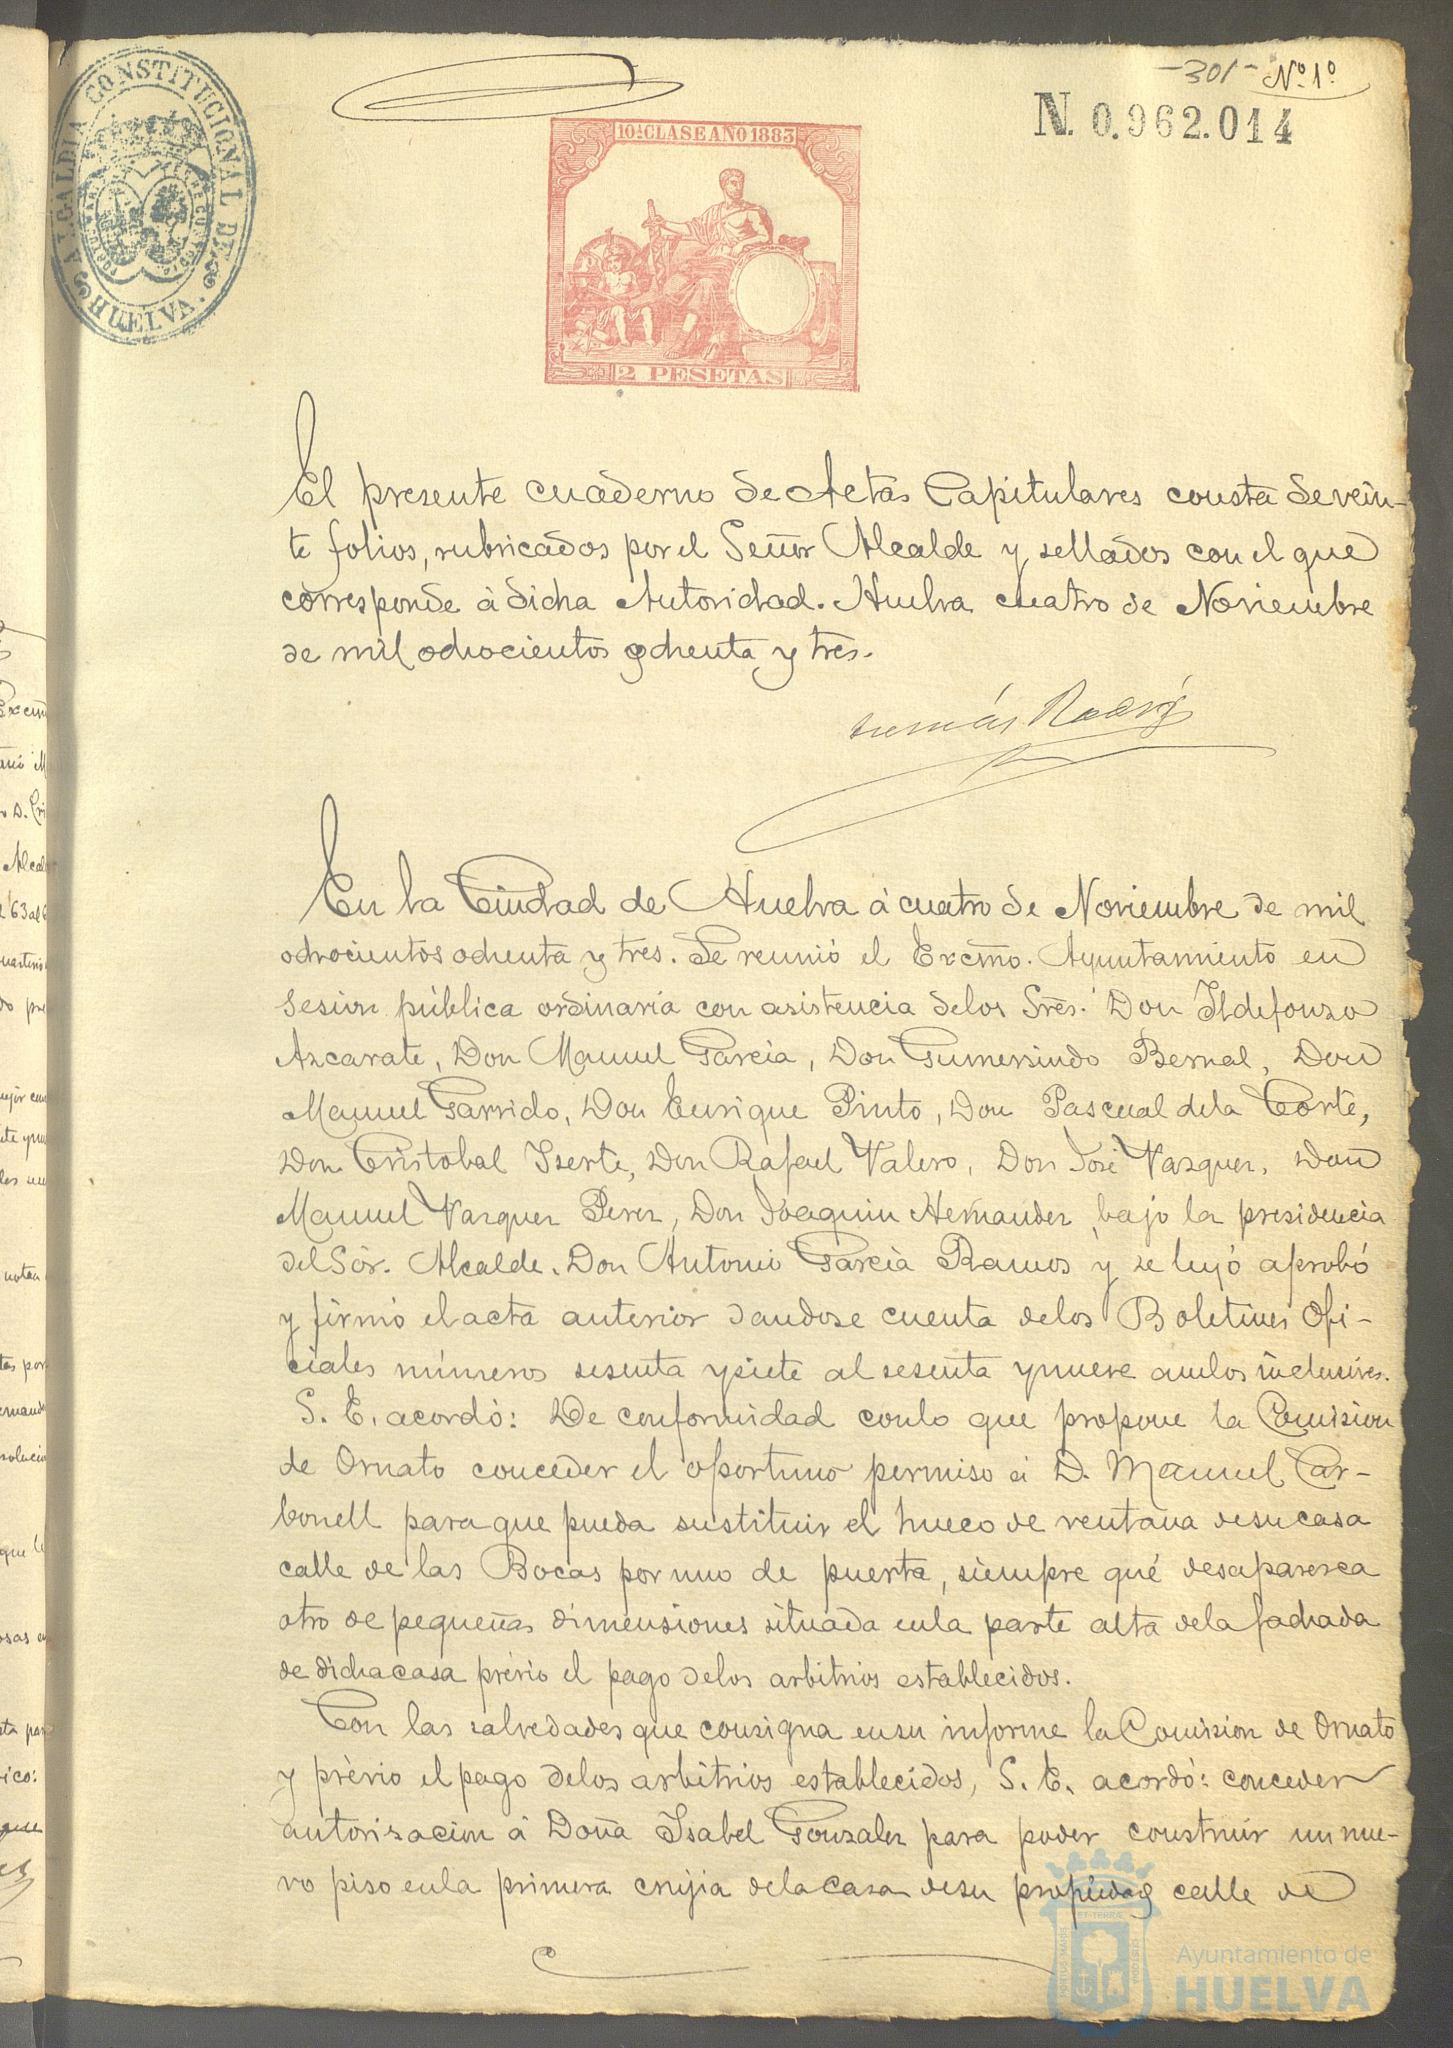 -301- Nº 1º
N. 0.962.014
ALCALDIA CONSTITUCIONAL DE HUELVA.
10ª CLASE AÑO 1883
2 PESETAS
El presente cuaderno de Actas Capitulares consta de vein-
te folios, rubricados por el Señor Alcalde y sellados con el que
corresponde á dicha Autoridad. Huelva cuatro de Noviembre
de mil ochocientos ochenta y tres.
En la Ciudad de Huelva á cuatro de Noviembre de mil
ochocientos ochenta y tres. Se reunió el Excmo. Ayuntamiento en
sesion pública ordinaria con asistencia de los Sres. Don Ildefonso
Azcarate, Don Manuel Garcia, Don Gumersindo Bernal, Don
Manuel Garrido, Don Enrique Pinto, Don Pascual de la Corte,
Don Cristobal Iserte, Don Rafael Valero, Don José Vazquez, Don
Manuel Vazquez Perez, Don Joaquin Hernandez bajo la presidencia
del Sór. Alcalde. Don Antonio Garcia Ramos y se leyó aprobó
y firmó el acta anterior dandose cuenta de los Boletines Ofi-
ciales números sesenta y siete al sesenta y nueve ambos inclusives.
S. E. acordó: De conformidad con lo que propone la Comision
de Ornato conceder el oportuno permiso á D. Manuel Car-
bonell para que pueda sustituir el hueco de ventana de su casa
calle de las Bocas por uno de puerta, siempre qué desaparesca
otro de pequeñas dimensiones situada en la parte alta de la fachada
de dicha casa prévio el pago de los arbitrios establecidos.
Con las salvedades que consigna en su informe la Comision de Ornato
y prévio el pago de los arbitrios establecidos, S. E. acordó: conceder
autorizacion á Doña Isabel Gonzalez para poder construir un nue-
vo piso en la primera crujia de la casa de su propiedad calle de
Ayuntamiento de
HUELVA